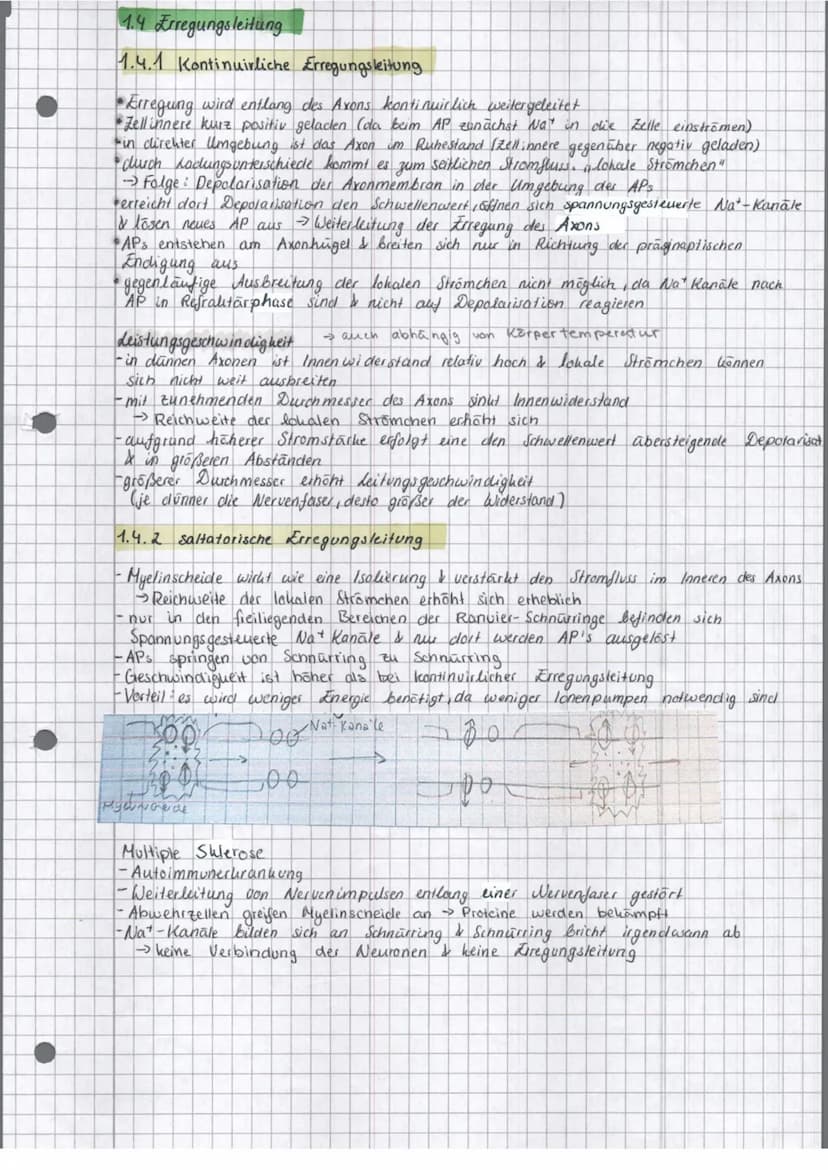 1.4 Erregungsleitung
1.4.1 Kontinuirliche Erregungsleitung
• Erregung wird entlang des Axons kontinuirlich weitergeleitet
• Zellinnere kurz positiv geladen (da beim AP zunächst Na⁺ in die Zelle einströmen)
• in direkter Umgebung ist das Axon im Ruhestand (Zellinnere gegenüber negativ geladen)
• durch Ladungsunterschiede kommt es zum seitlichen Stromfluss. „lokale Strömchen"
→ Folge: Depolarisation der Axonmembran in der Umgebung der APs
• erreicht dort Depolarisation den Schwellenwert, öffnen sich spannungsgesteuerte Na⁺-Kanäle
& lösen neues AP aus → Weiterleitung der Erregung des Axons
• APs entstehen am Axonhügel & breiten sich nur in Richtung der präsynaptischen
Endigung aus
• gegenläufige Ausbreitung der lokalen Strömchen nicht möglich, da Na⁺ Kanäle nach
AP in Refraktärphase sind & nicht auf Depolarisation reagieren
Leistungsgeschwindigkeit → auch abhängig von Körpertemperatur
- in dünnen Axonen ist Innenwiderstand relativ hoch & lokale Strömchen können
sich nicht weit ausbreiten
- mit zunehmenden Durchmesser des Axons sinkt Innenwiderstand
→ Reichweite der lokalen Strömchen erhöht sich
- aufgrund höherer Stromstärke erfolgt eine den Schwellenwert übersteigende Depolarisat
& in größeren Abständen
- größerer Durchmesser erhöht Leitungsgeschwindigkeit
(je dünner die Nervenfaser, desto größer der Widerstand)
1.4.2 saltatorische Erregungsleitung
- Myelinscheide wirkt wie eine Isolierung & verstärkt den Stromfluss im Inneren des Axons
→ Reichweite der lokalen Strömchen erhöht sich erheblich
- nur in den freiliegenden Bereichen der Ranvier-Schnürringe befinden sich
Spannungsgesteuerte Na⁺ Kanäle & nur dort werden AP's ausgelöst
- APs springen von Schnürring zu Schnürring
- Geschwindigkeit ist höher als bei kontinuirlicher Erregungsleitung
- Vorteil: es wird weniger Energie benötigt, da weniger Ionenpumpen notwendig sind
Na⁺-Kanäle
Myelinscheide
Multiple Sklerose
- Autoimmunerkrankung
- Weiterleitung von Nervenimpulsen entlang einer Nervenfaser gestört
- Abwehrzellen greifen Myelinscheide an → Proteine werden bekämpft
- Na⁺-Kanäle bilden sich an Schnürring & Schnürring bricht irgendwann ab
→ keine Verbindung der Neuronen & keine Erregungsleitung